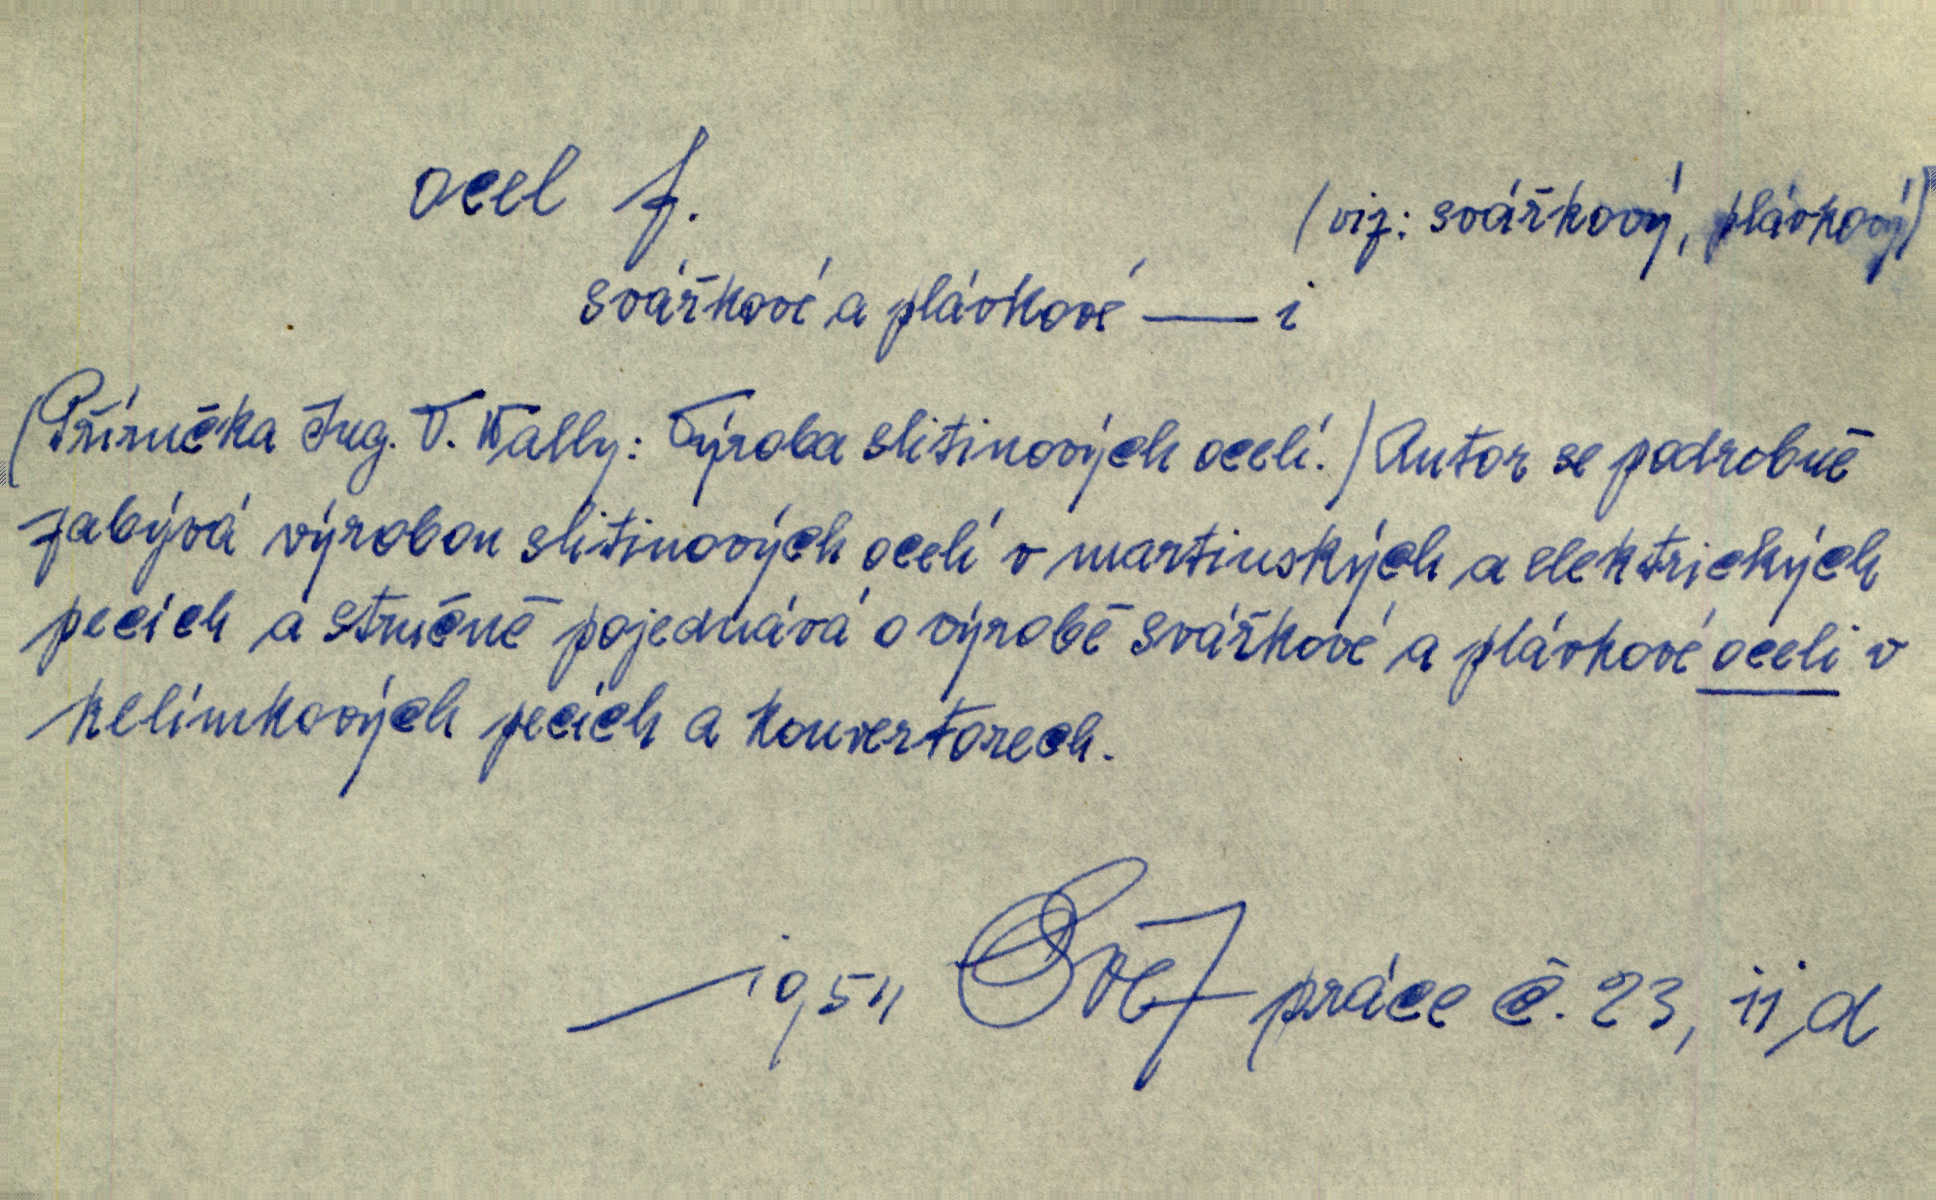 ocel f.
(viz: svářkový, plávkový)
svářkové a plávkové — i
(Příručka Ing. V. Wally: Výroba slitinových ocelí.) Autor se podrobně
zabývá výrobou slitinových ocelí v martinských a elektrických
pecích a stručně pojednává o výrobě svářkové a plávkové oceli v
kelímkových pecích a konvertorech.
1954 práce č. 23, ii, d